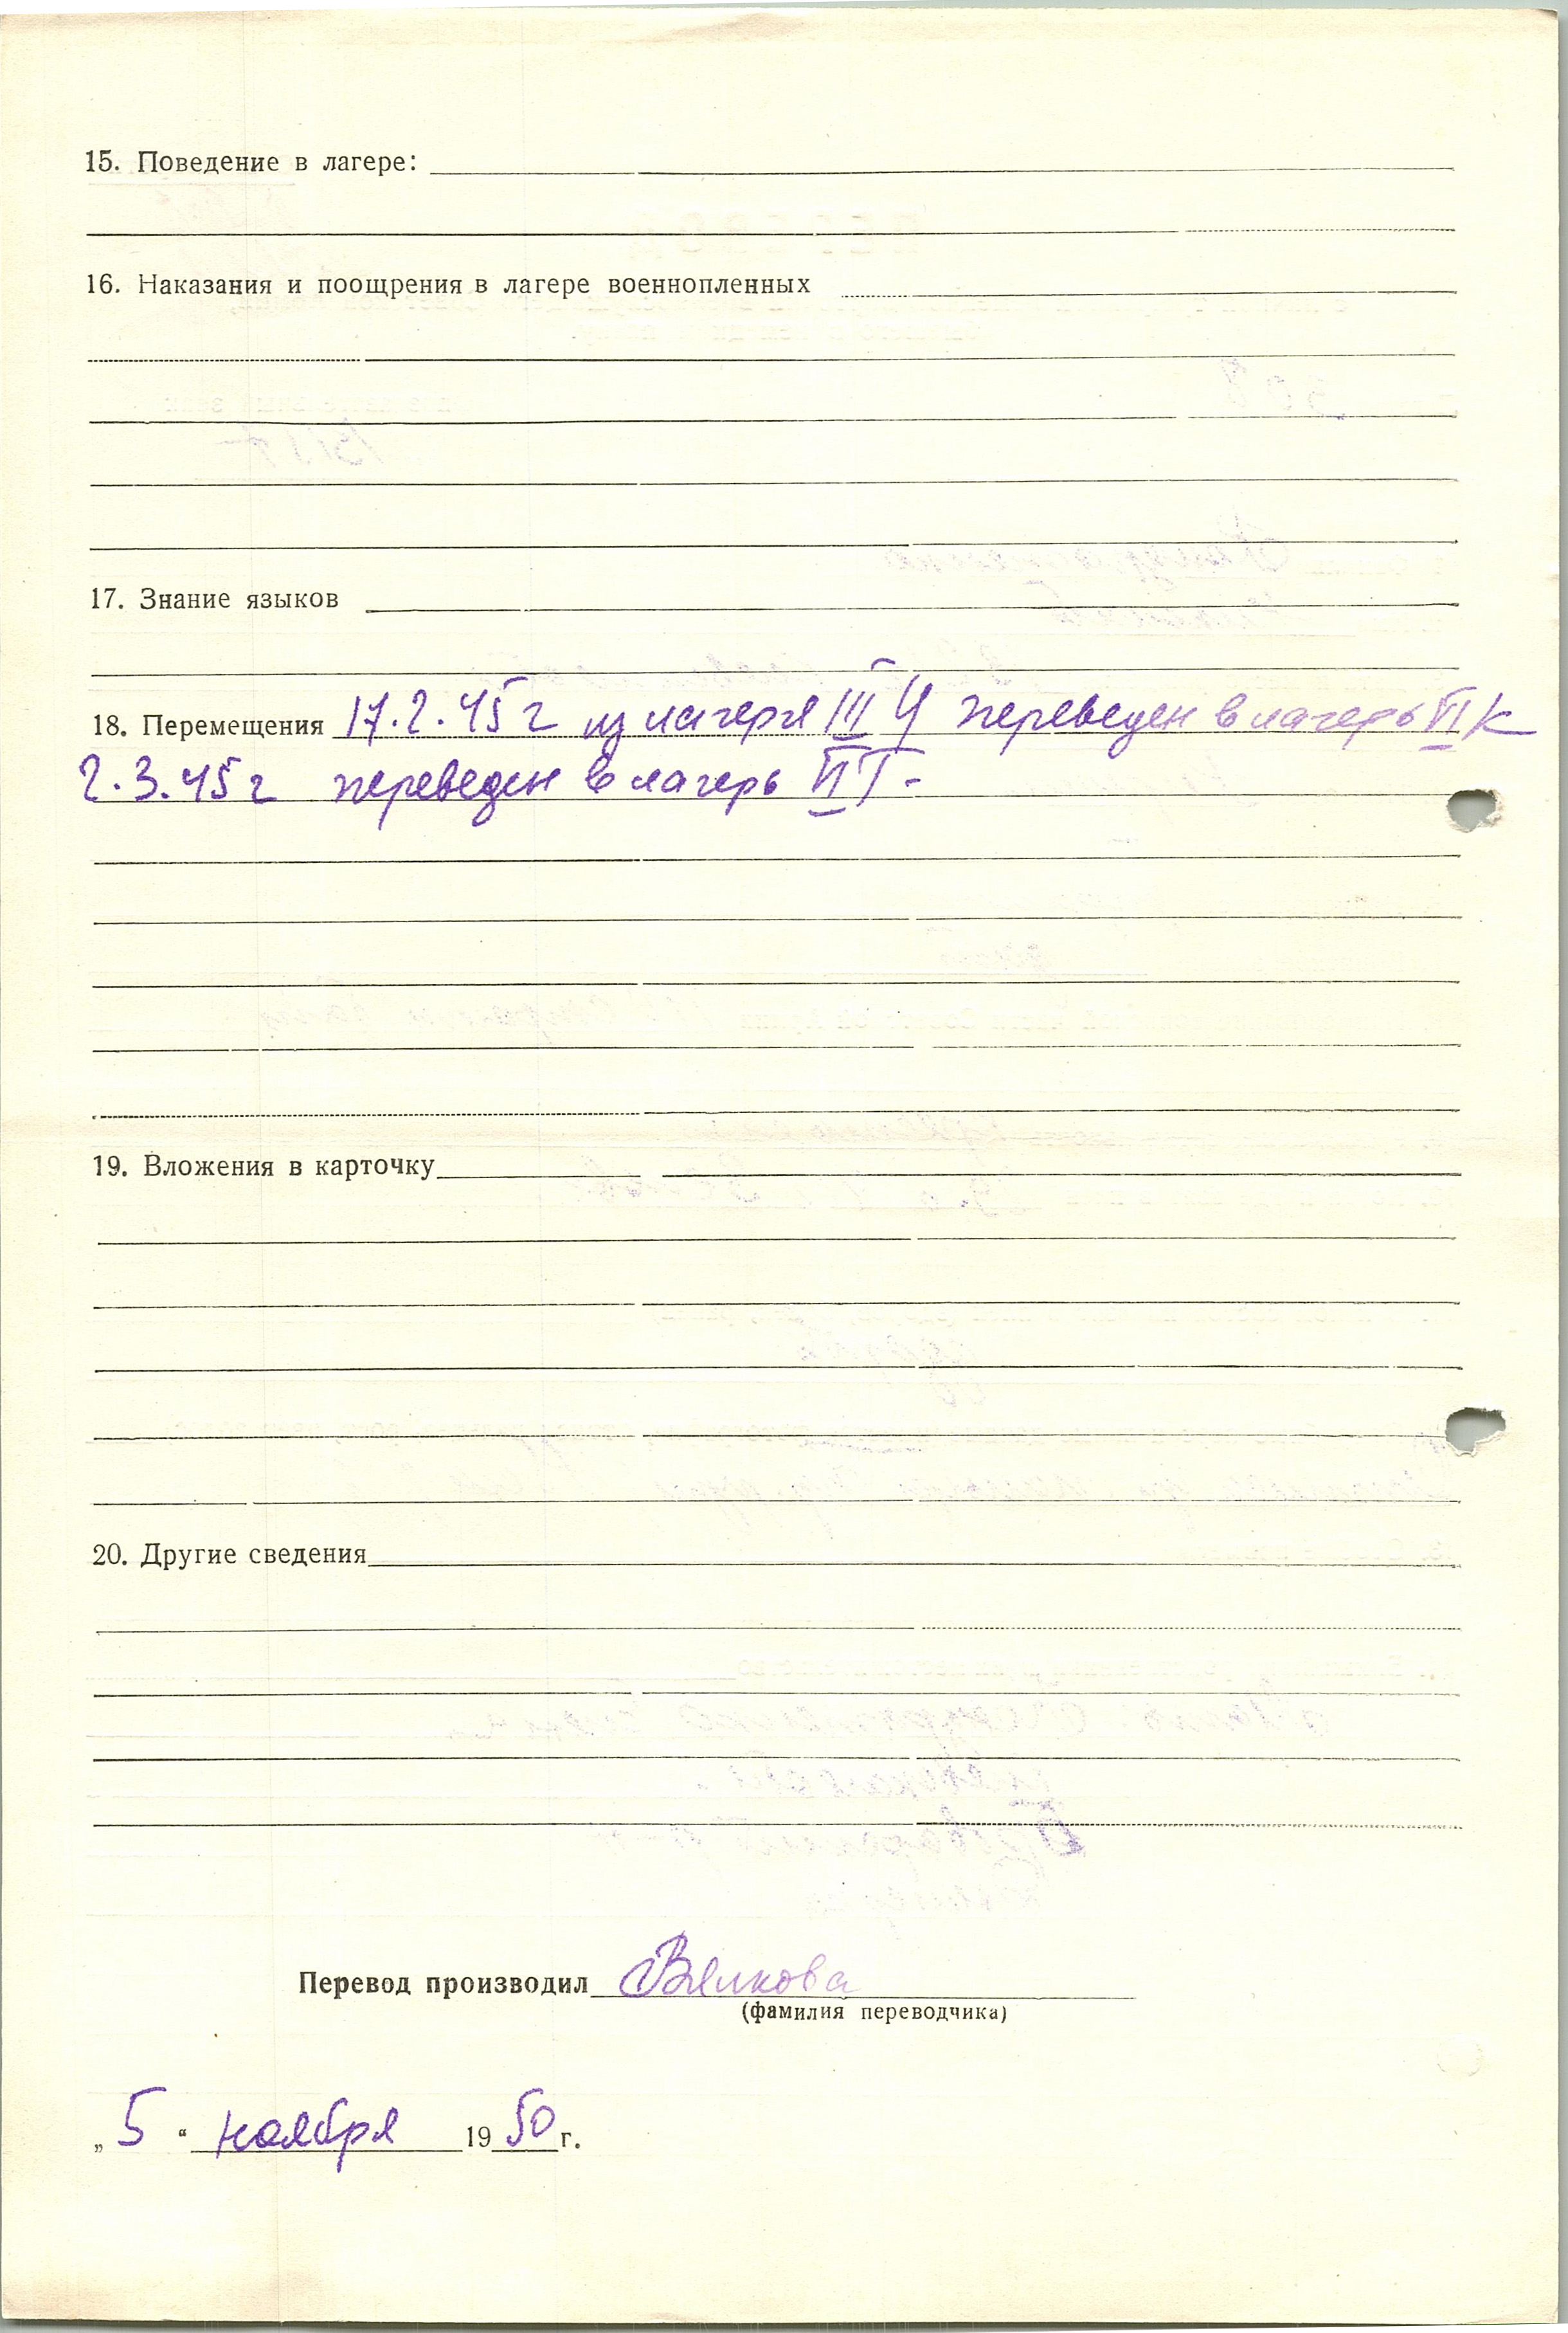 15. Поведение в лагере:
16. Наказания и поощрения в лагере военнопленных
17. Знание языков
18. Перемещения 17.2.45 г из лагеря III Ц переведен в лагерь VI К
2.3.45 г переведен в лагерь VI Г-
19. Вложения в карточку
20. Другие сведения
Перевод производил
(фамилия переводчика)
„ 5 “ ноября 19 50 г.